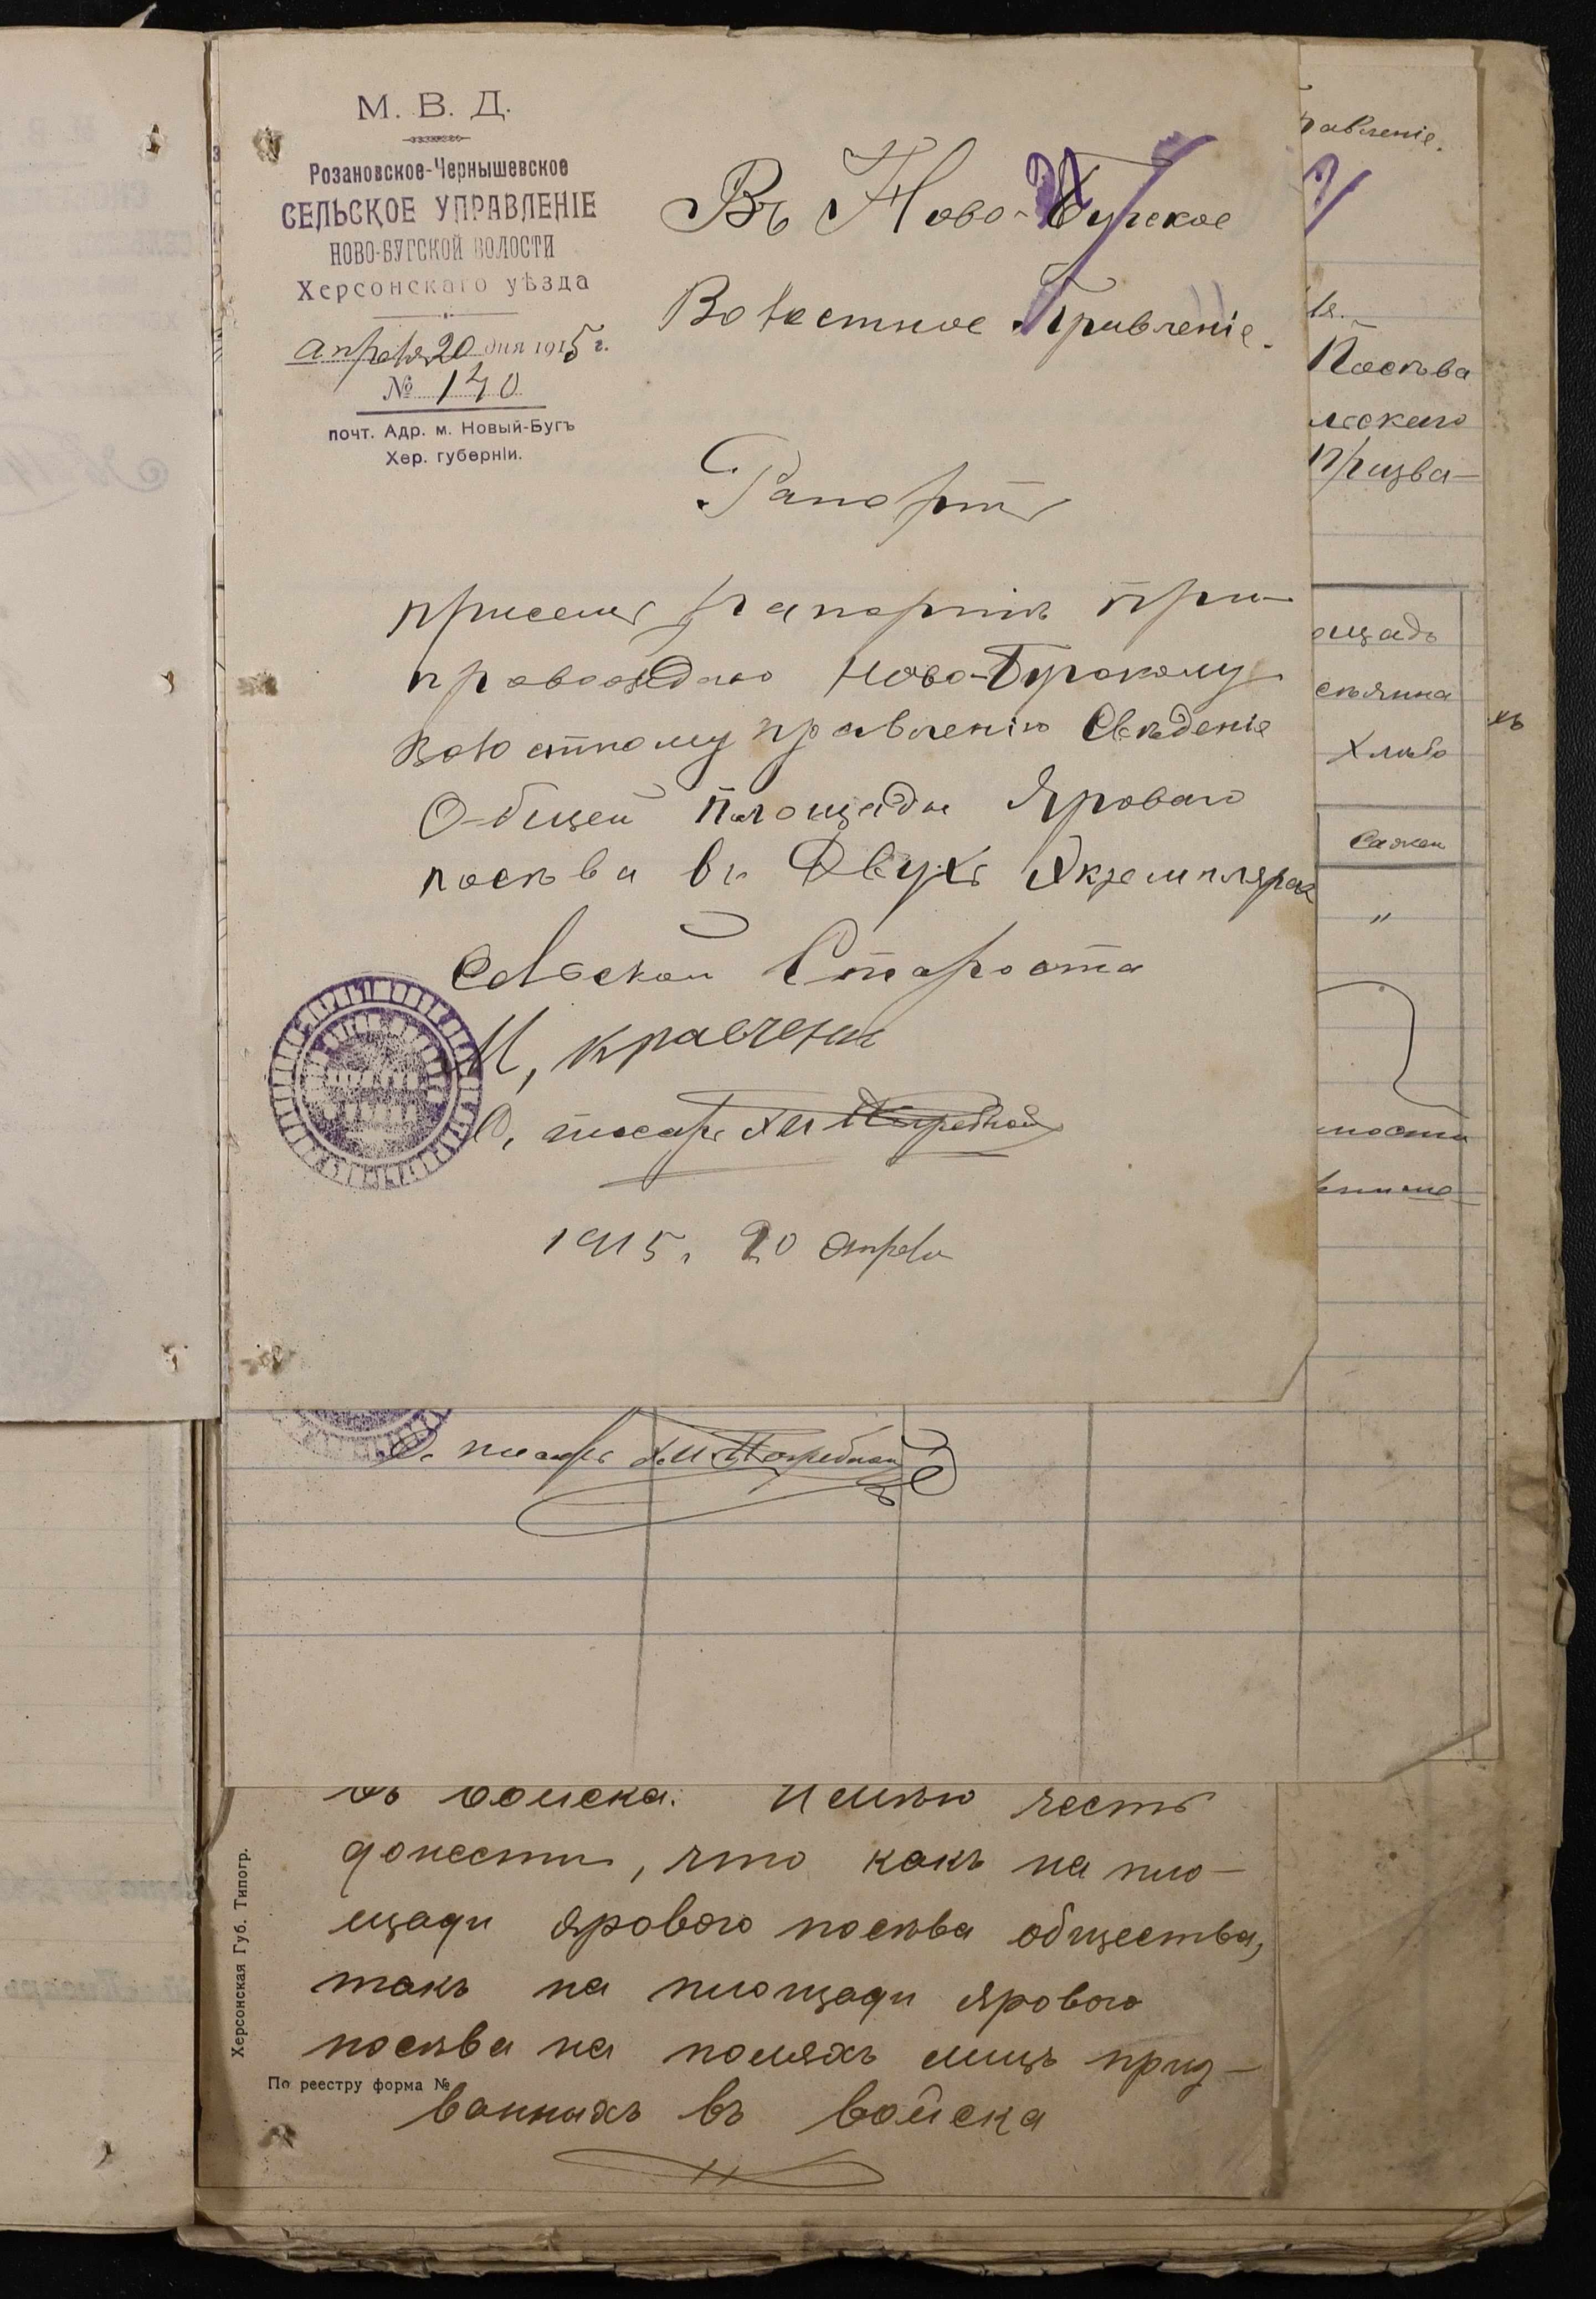 М. В. Д.
Розановское-Чернышевское
СЕЛЬСКОЕ УПРАВЛЕНІЕ
НОВО-БУГСКОЙ ВОЛОСТИ
Херсонскаго уѣзда
апреля 20 дня 1915 г.
№ 140
почт. Адр. м. Новый-Бугъ
Хер. губерніи.
Въ Ново-Бугское
Волостное Правленіе.
Рапортъ
присемъ рапортѣ при-
провождаю Ново-Бугскому
волостному правленію Сведеніе
Общей площади Ярового
посѣва въ Двухъ Экземплярах
Сельской Староста
И, кравченко
С, писарь
1915, 20 апреля
авленіе.
ія.
Посѣва
льскаго
призва-
ощадь
Хлѣбо
Сажен
"
ности
хъ
С. писарь
въ войска. Имѣю честь
донести, что какъ на пло-
щади ярового посѣва общества,
такъ на площади ярового
посѣва на поляхъ лицъ приз-
ванныхъ въ войска
Херсонская Губ. Типогр.
По реестру форма №